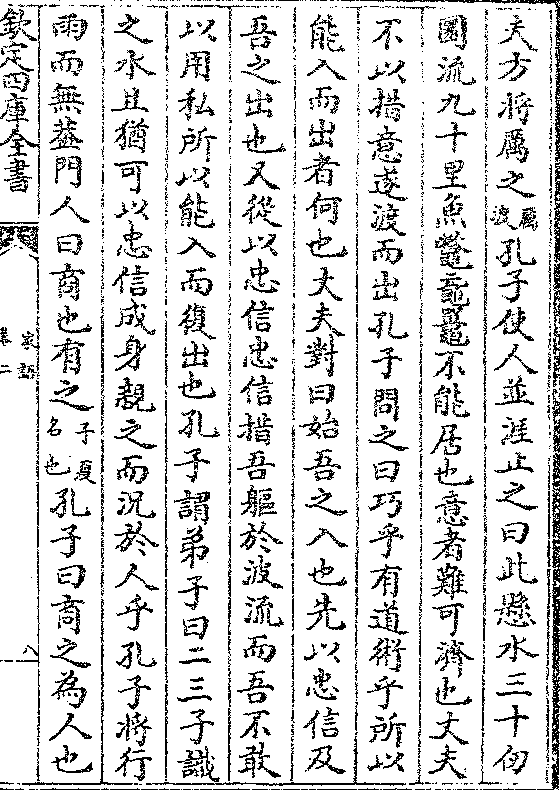 夫方将厲之厲渡孔子使人並涯止之曰此懸水三十仞
圜流九十里魚鼈黿鼉不能居也意者難可濟也丈夫
不以措意遂渡而出孔子問之曰巧乎有道術乎所以
能入而出者何也丈夫對曰始吾之入也先以忠信及
吾之出也又從以忠信忠信措吾軀於波流而吾不敢
以用私所以能入而復出也孔子謂弟子曰二三子識
之水且猶可以忠信成身親之而況於人乎孔子將行
雨而無葢門人曰商也有之子夏名也孔子曰商之為人也
欽定四庫全書
家語
卷二
八